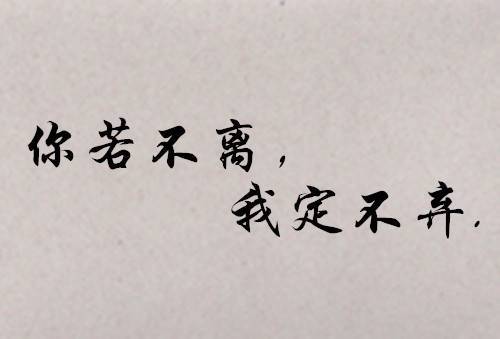 你若不离，
我定不弃.